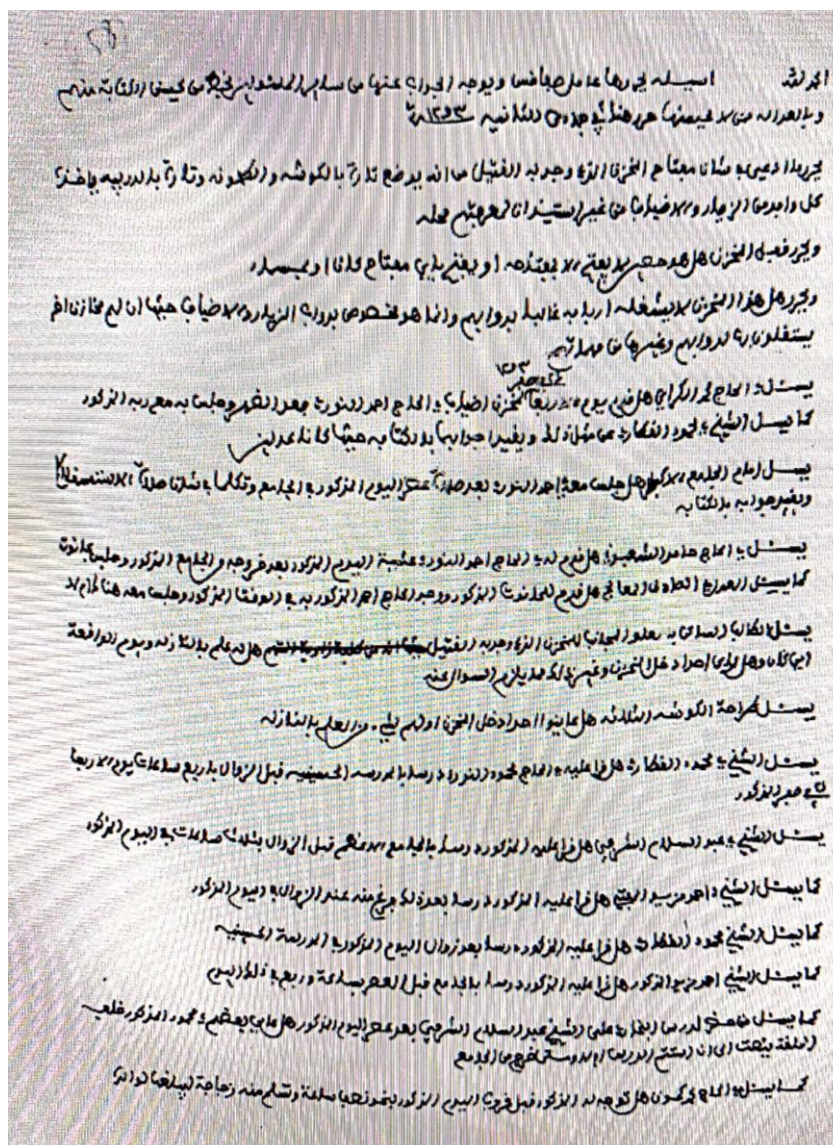 الحمد لله اسيلة يحررها عامل صفاقس ويوجه الجواب عنها من ساير المسئولين بخط من يحسن الكتابة منهم
وبالعدالة من لا يحسنها حرر هنا في جمادى الثانية سنة ١٢٩٣
يحرر ما ادعي به شان مفتاح المخزن الذي وجد به القتيل من انه يوضع تارة بالكوشه والكمونه وتارة بالدريبه ياخذه
كل واحد من الزوار والاضياف من غير استيذان لمعرفتهم محله
ويحرر قفل المخزن هل هو صحيح لا يفتح الا بمفتاحه او يفتح باي مفتاح كان او بمسمار
ويحرر هل هذا المخزن لا يشغله اربابه غالبا بدوابهم وانما هو مخصوص بدواب الزوار والاضياف حيث ان لهم مخازن اخر
يستغلون بها لدوابهم وغيرها من مهماتهم
يسئل الحاج محمد الكراي هل قدم يوم الاربعاء صفر ١٢٩٣ الحاج احمد النوري بعد الظهر وجلس به معه ربه المذكور
كما يسئل الشيخ محمود الفطارى عن مثل ذلك ويقيد جوابهما بالكتابة حيث كانا عدلين
يسئل امام الجامع الاكبر هل جلس معه احمد النوري بعد صلاة عصر اليوم المذكور بالجامع وتكلما في شان صلاة الاستسقاء
ويقيد جوابه بالكتابه
يسئل الحاج حامد الشعبوني هل قدم له الحاج احمد النوري عشية اليوم المذكور بعد خروجه من الجامع المذكور وجلس بحانوت
كما يسئل هل قدم للحانوت المذكور ووجد الحاج احمد المذكور به في الوقت المذكور وجلس معه هنا ام لا
يسئل الساكن به بعلو المخزن الذي وجد به القتيل هل له علم بالنازلة ويوم الواقعة
اين كان وهل راى احدا دخل المخزن وغير ذلك مما يلزم السوال عنه
يسئل طراحة الكوشه الثلاثه هل عاينوا احدا دخل المخزن او لهم شيء من العلم بالنازله
يسئل الشيخ محمود الفطارى هل قرا عليه الحاج محمود النوري درسا بالمدرسه الحسينيه قبل الزوال باربع ساعات يوم الاربعا
صفر المذكور
يسئل الشيخ عبد السلام الشرفي هل قرا عليه المذكور درسا بالجامع الاعظم قبل الزوال بثلاث ساعات في اليوم المذكور
كما يسئل الشيخ احمد مزيد هل قرا عليه المذكور درسا بعد ذلك وفرغ منه عند الزوال في يوم المذكور
كما يسئل الشيخ محمود الفطارى هل قرا عليه المذكور درسا بعد زوال اليوم المذكور بالمدرسة الحسينيه
كما يسئل الشيخ احمد مزيد المذكور هل قرا عليه المذكور درسا بالجامع قبل العصر بساعة وربع في ذلك اليوم
كما يسئل من حضر لدرس البخاري على الشيخ عبد السلام الشرفي بعد عصر اليوم المذكور هل عاين بعضهم محمود المذكور خلف
الحلقة ينصت الى ان استتم الدرس وخرج من الجامع
كما يسئل الحاج محمد كمون هل توجه له المذكور قبل غروب اليوم المذكور بنحو نصف ساعة وتسلم منه زجاجة ليبلغها لوالده